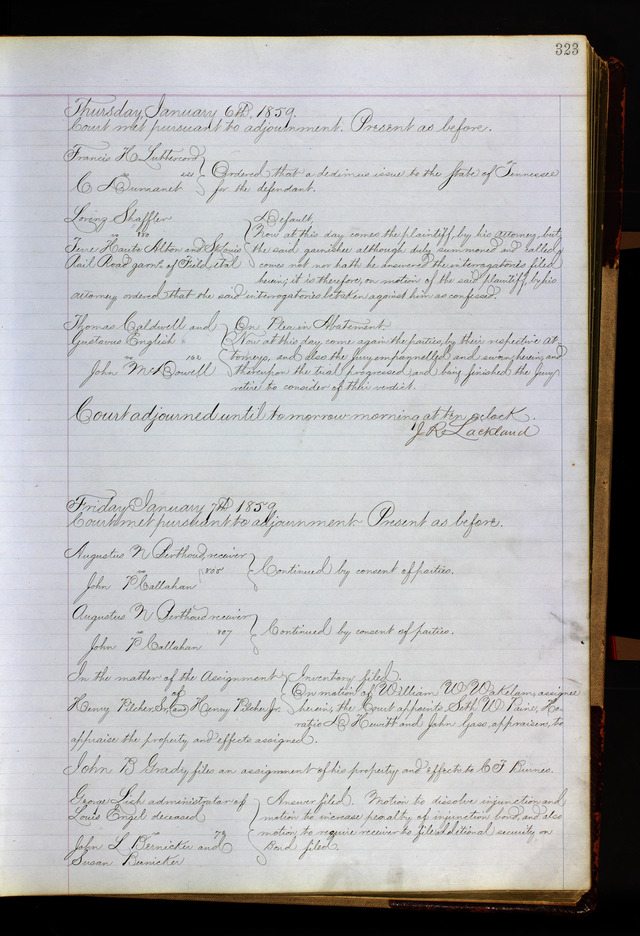 323
Thursday, January 6th, 1859.
Court met pursuant to adjournment. Present as before.
Francis H. Luttercord
vs 
C A Burnanet
Ordered that a dedimus issue to the State of Tennessee
for the defendant.
Loring Shaffler
vs
Terre Haute Alton and St Louis
Rail Road garn. of Field et al
Default,
Now at this day comes the plaintiff, by his attorney, but
the said garnishee although duly summoned and called
comes not nor hath he answered the interrogatories filed
herein; it is therefore, on motion of the said plaintiff, by his
attorney ordered that the said interrogatories be taken against him as confessed.
Thomas Caldwell and
Gustavus English
vs 162
John McDowell
On Plea in Abatement
Now at this day, come again the parties, by their respective at-
torneys, and also the Jury empannelled and sworn herein, and
thereupon the trial progressed, and being finished the Jury
retire to consider of their verdict.
Court adjourned until tomorrow morning at ten o'clock.
J. R. Lackland
Friday January 7th 1859
Court met pursuant to adjournment. Present as before.
Augustus N Perthoud, receiver
vs 805
John P Callahan
Continued by consent of parties.
Augustus N Perthoud receiver
vs 807
John P Callahan
Continued by consent of parties.
In the matter of the Assignment
of
Henry Pilcher, Sr, and Henry Pilcher Jr.
Inventory filed.
On motion of William W Wakelam, assignee
herein, the Court appoints Seth W Paine, Ho-
ratio D Hewitt and John Gass, appraisers, to
appraise the property and effects assigned.
John B Grady, files an assignment of his property and effects to C F Burnes.
George Lish administrator of
Louis Engel deceased
vs 79
John L Bernicker and
Susan Bernicker
Answer filed. Motion to dissolve injunction and
motion to increase penalty of injunction bond, and also
motion to require receiver to file additional security on
Bond filed.